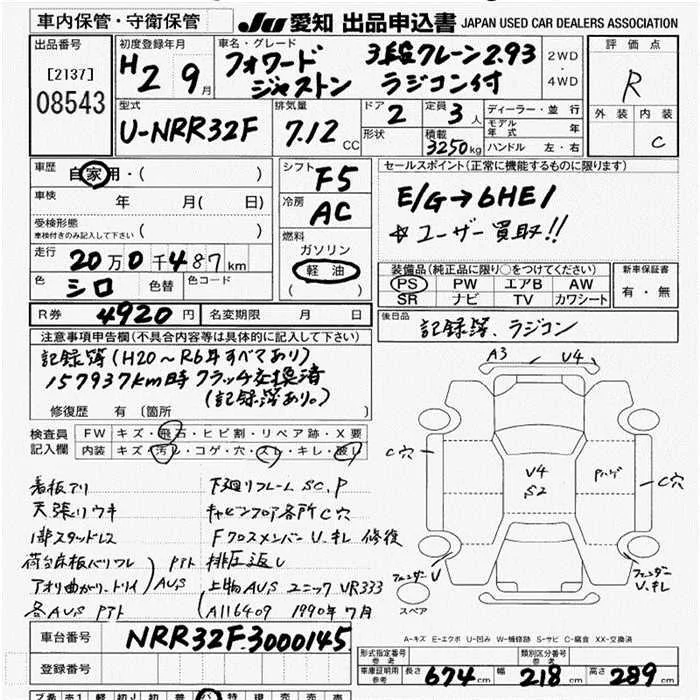 車内保管・守衛保管 JU 愛知 出品申込書 JAPAN USED CAR DEALERS ASSOCIATION
出品番号 [2137] 08543
初度登録年月 H2 9月
車名・グレード フォワード ジャストン 3段クレーン 2.93 ラジコン付
2WD・4WD
評価点 R
外装 内装 C
型式 U-NRR32F
排気量 7.12 CC
ドア 2
形状
定員 3人
積載 3250kg
ディーラー・並行
モデル年式 年
ハンドル 左・右
車歴 自家用・( )
車検 年 月( 日)
受検形態 車検付きのみ記入して下さい ( )
走行 20万0千487km
色 シロ 色替 色コード
シフト F5
冷房 AC
燃料 ガソリン 軽油 ( )
セールスポイント(正常に機能するものに限ります)
E/G→6HE1
☆ユーザー買取!!
装備品(純正品に限り○をつけてください)
PS PW エアB AW
SR ナビ TV カワシート
新車保証書 有・無
R券 4920円 名変期限 月 日
後日品 記録簿、ラジコン
注意事項申告欄(不具合内容等は具体的に記入して下さい)
記録簿(H20～R6年すべてあり)
157937km時 クラッチ交換済
(記録簿あり。)
修復歴 有 〔箇所 〕
検査員記入欄
FW キズ・飛石・ヒビ割・リペア跡・X要
内装 キズ・汚レ・コゲ・穴・スレ・キレ・破レ
看板アリ 下廻リフレームSC,P
天張リウキ キャビンフロア各所C穴
1部スタッドレス Fクロスメンバー U、キレ 修復
荷台床板バリワレ 排圧返し
アオリ曲がり、トリイ PアトAUS 上物AUS ユニック UR333
各AUS Pアト (A116409 1990年7月
A3 V4
C穴 V4 S2 Pハゲ C穴
フェンダーU フェンダーU、キレ
スペア
A-キズ E-エクボ U-凹み W-補修跡 S-サビ C-腐食 XX-交換済
車台番号 NRR32F-3000145
登録番号
型式指定番号 参考 類別区分番号 参考
車庫証明用 参考 長さ 674cm 幅 218cm 高さ 289cm